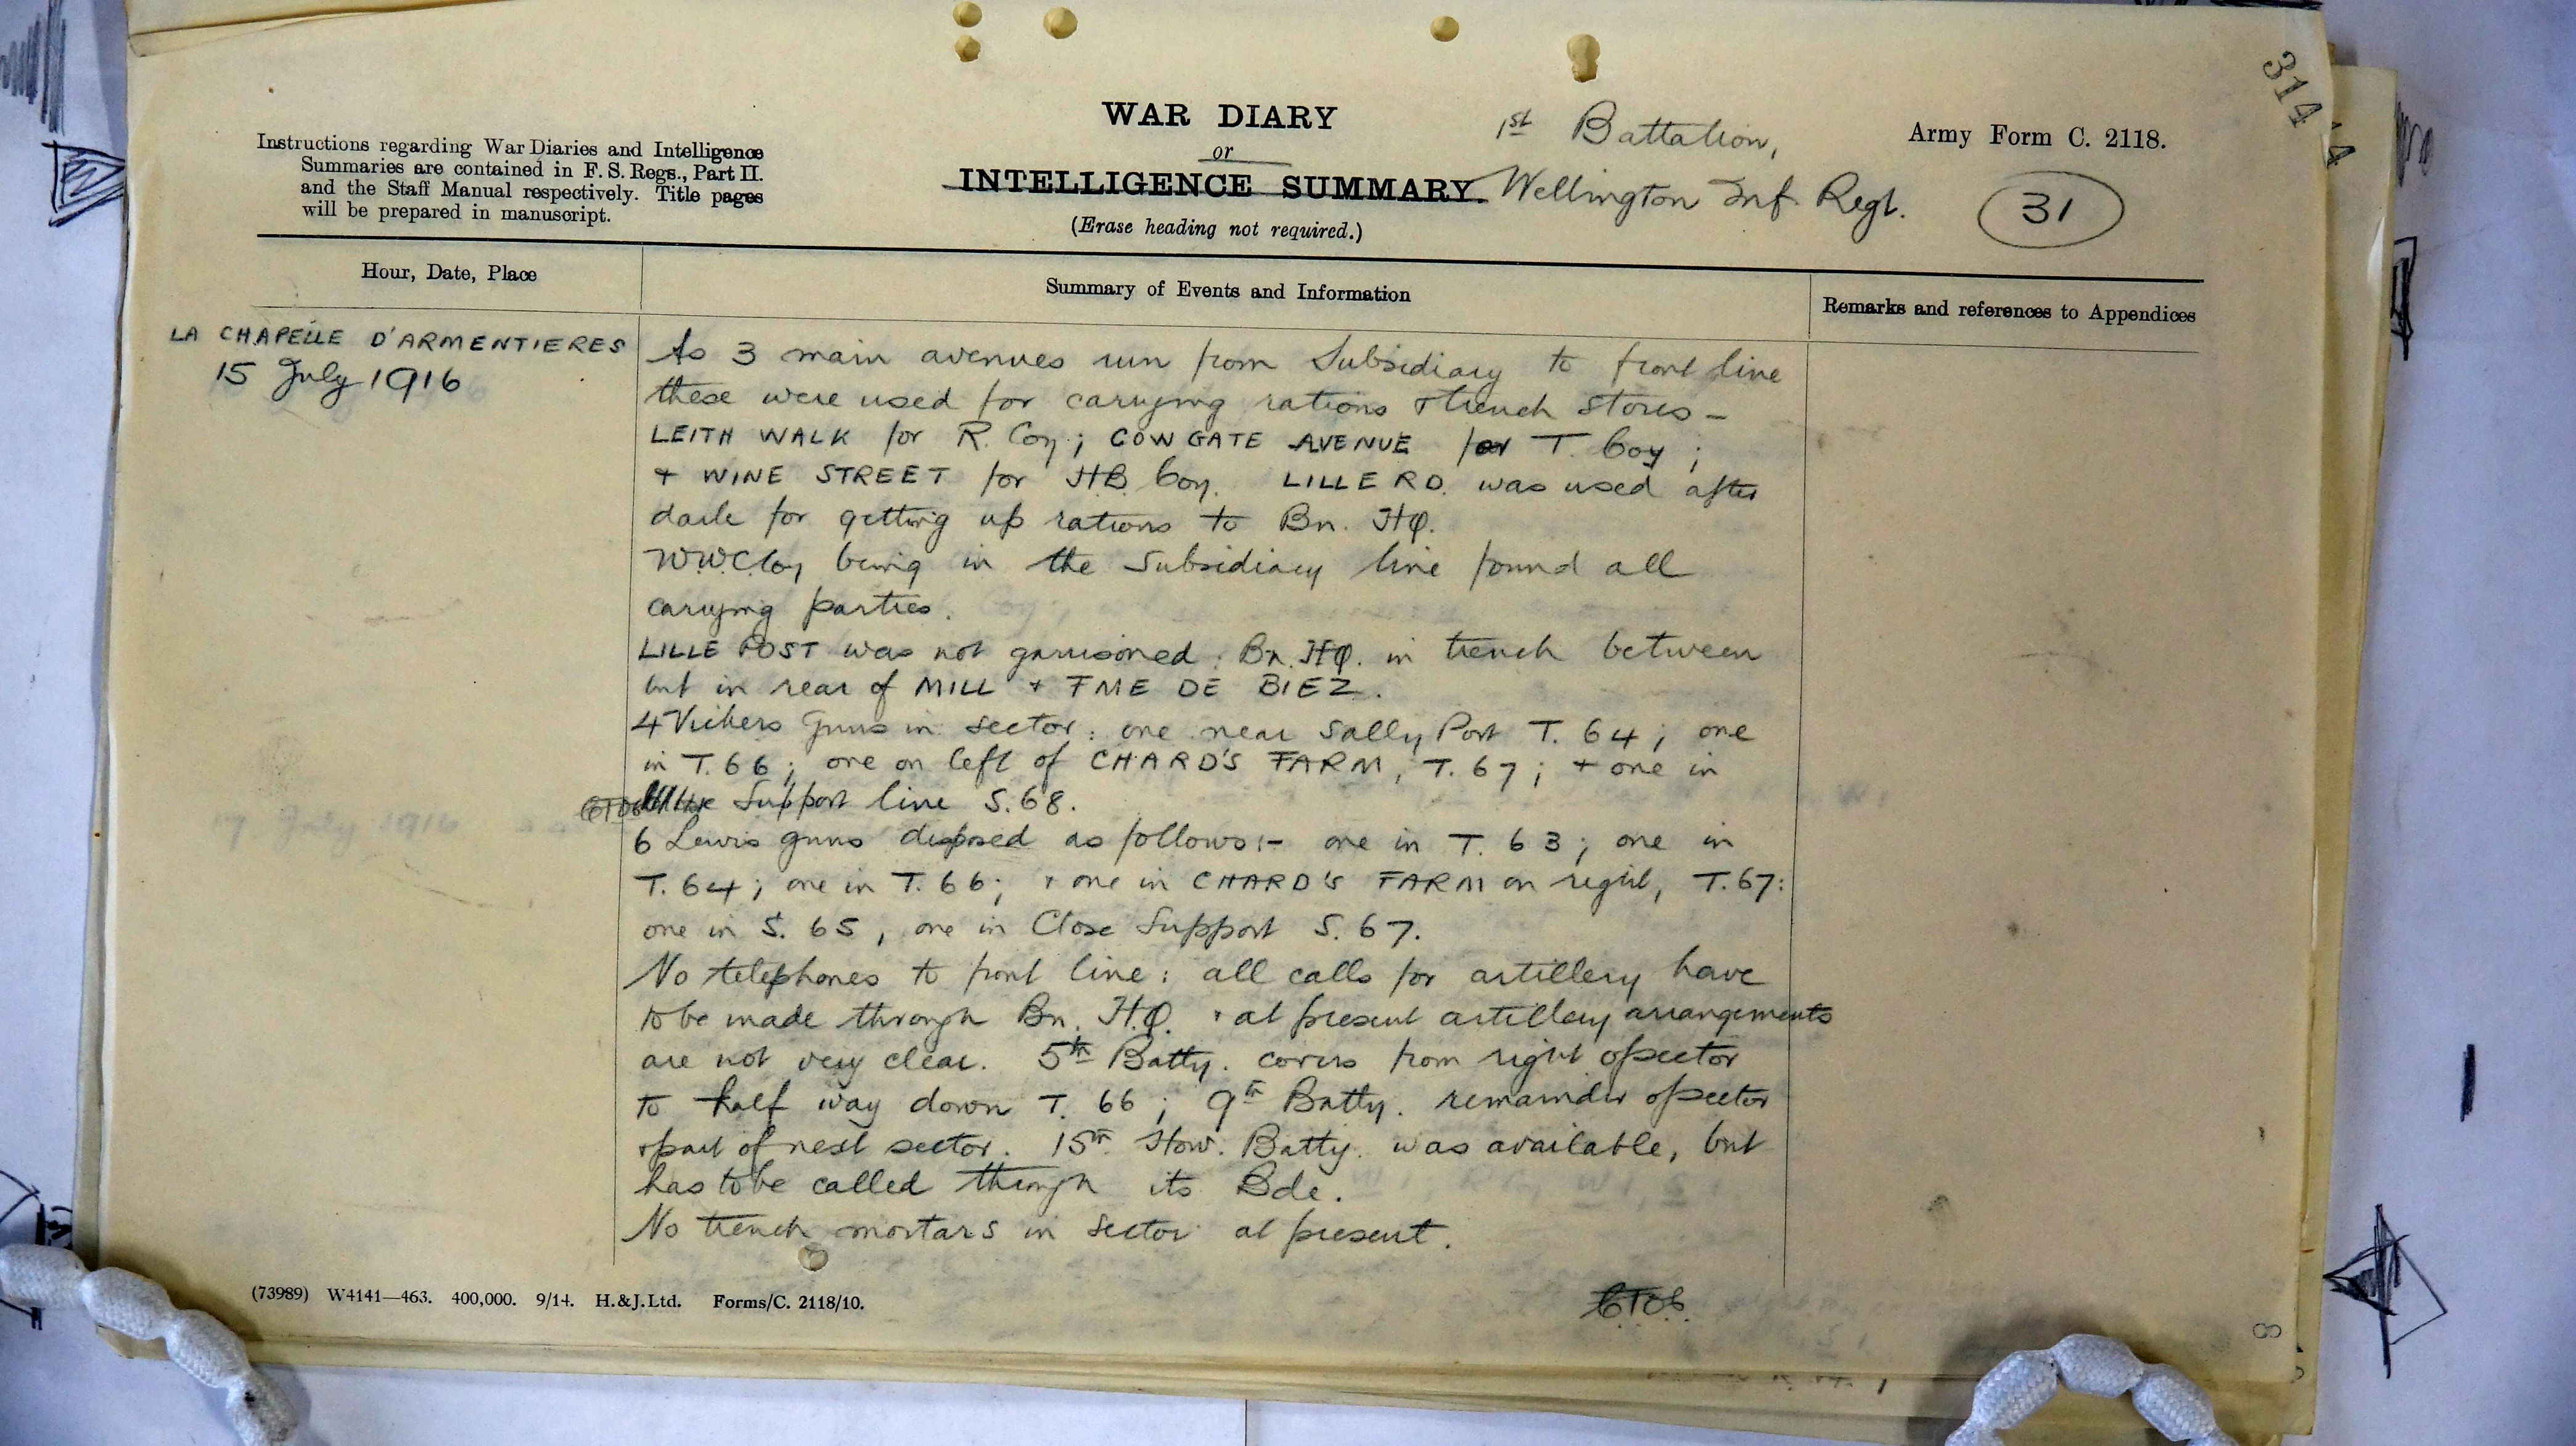 314
WAR DIARY
or
INTELLIGENCE SUMMARY.
(Erase heading not required.)
Instructions regarding War Diaries and Intelligence
Summaries are contained in F. S. Regs., Part II.
and the Staff Manual respectively. Title pages
will be prepared in manuscript.
1st Battalion,
Wellington Inf. Regt.
Army Form C. 2118.
31
Hour, Date, Place
Summary of Events and Information
Remarks and references to Appendices
LA CHAPELLE D'ARMENTIERES
15 July 1916
As 3 main avenues run from Subsidiary to front line
these were used for carrying rations & trench stores –
LEITH WALK for R. Coy; COWGATE AVENUE for T. Coy;
+ WINE STREET for H.B. Coy. LILLE RD. was used after
dark for getting up rations to Bn. HQ.
W.W.C. Coy being in the Subsidiary line found all
carrying parties.
LILLE POST was not garrisoned: Bn. HQ. in trench between
but in rear of MILL + FME DE BIEZ.
4 Vickers Guns in sector: one near Sally Port T. 64; one
in T. 66; one on left of CHARD'S FARM, T. 67; + one in
Support line S. 68.
6 Lewis guns disposed as follows:- one in T. 63; one in
T. 64; one in T. 66; + one in CHARD'S FARM on right, T. 67:
one in S. 65, one in Close Support S. 67.
No telephones to front line: all calls for artillery have
to be made through Bn. H.Q. + at present artillery arrangements
are not very clear. 5th Batty. covers from right of sector
to half way down T. 66; 9th Batty. remainder of sector
+ part of next sector. 15th How. Batty. was available, but
has to be called through its Bde.
No trench mortars in sector at present.
(73989) W4141—463. 400,000. 9/14. H.&J.Ltd. Forms/C. 2118/10.
8